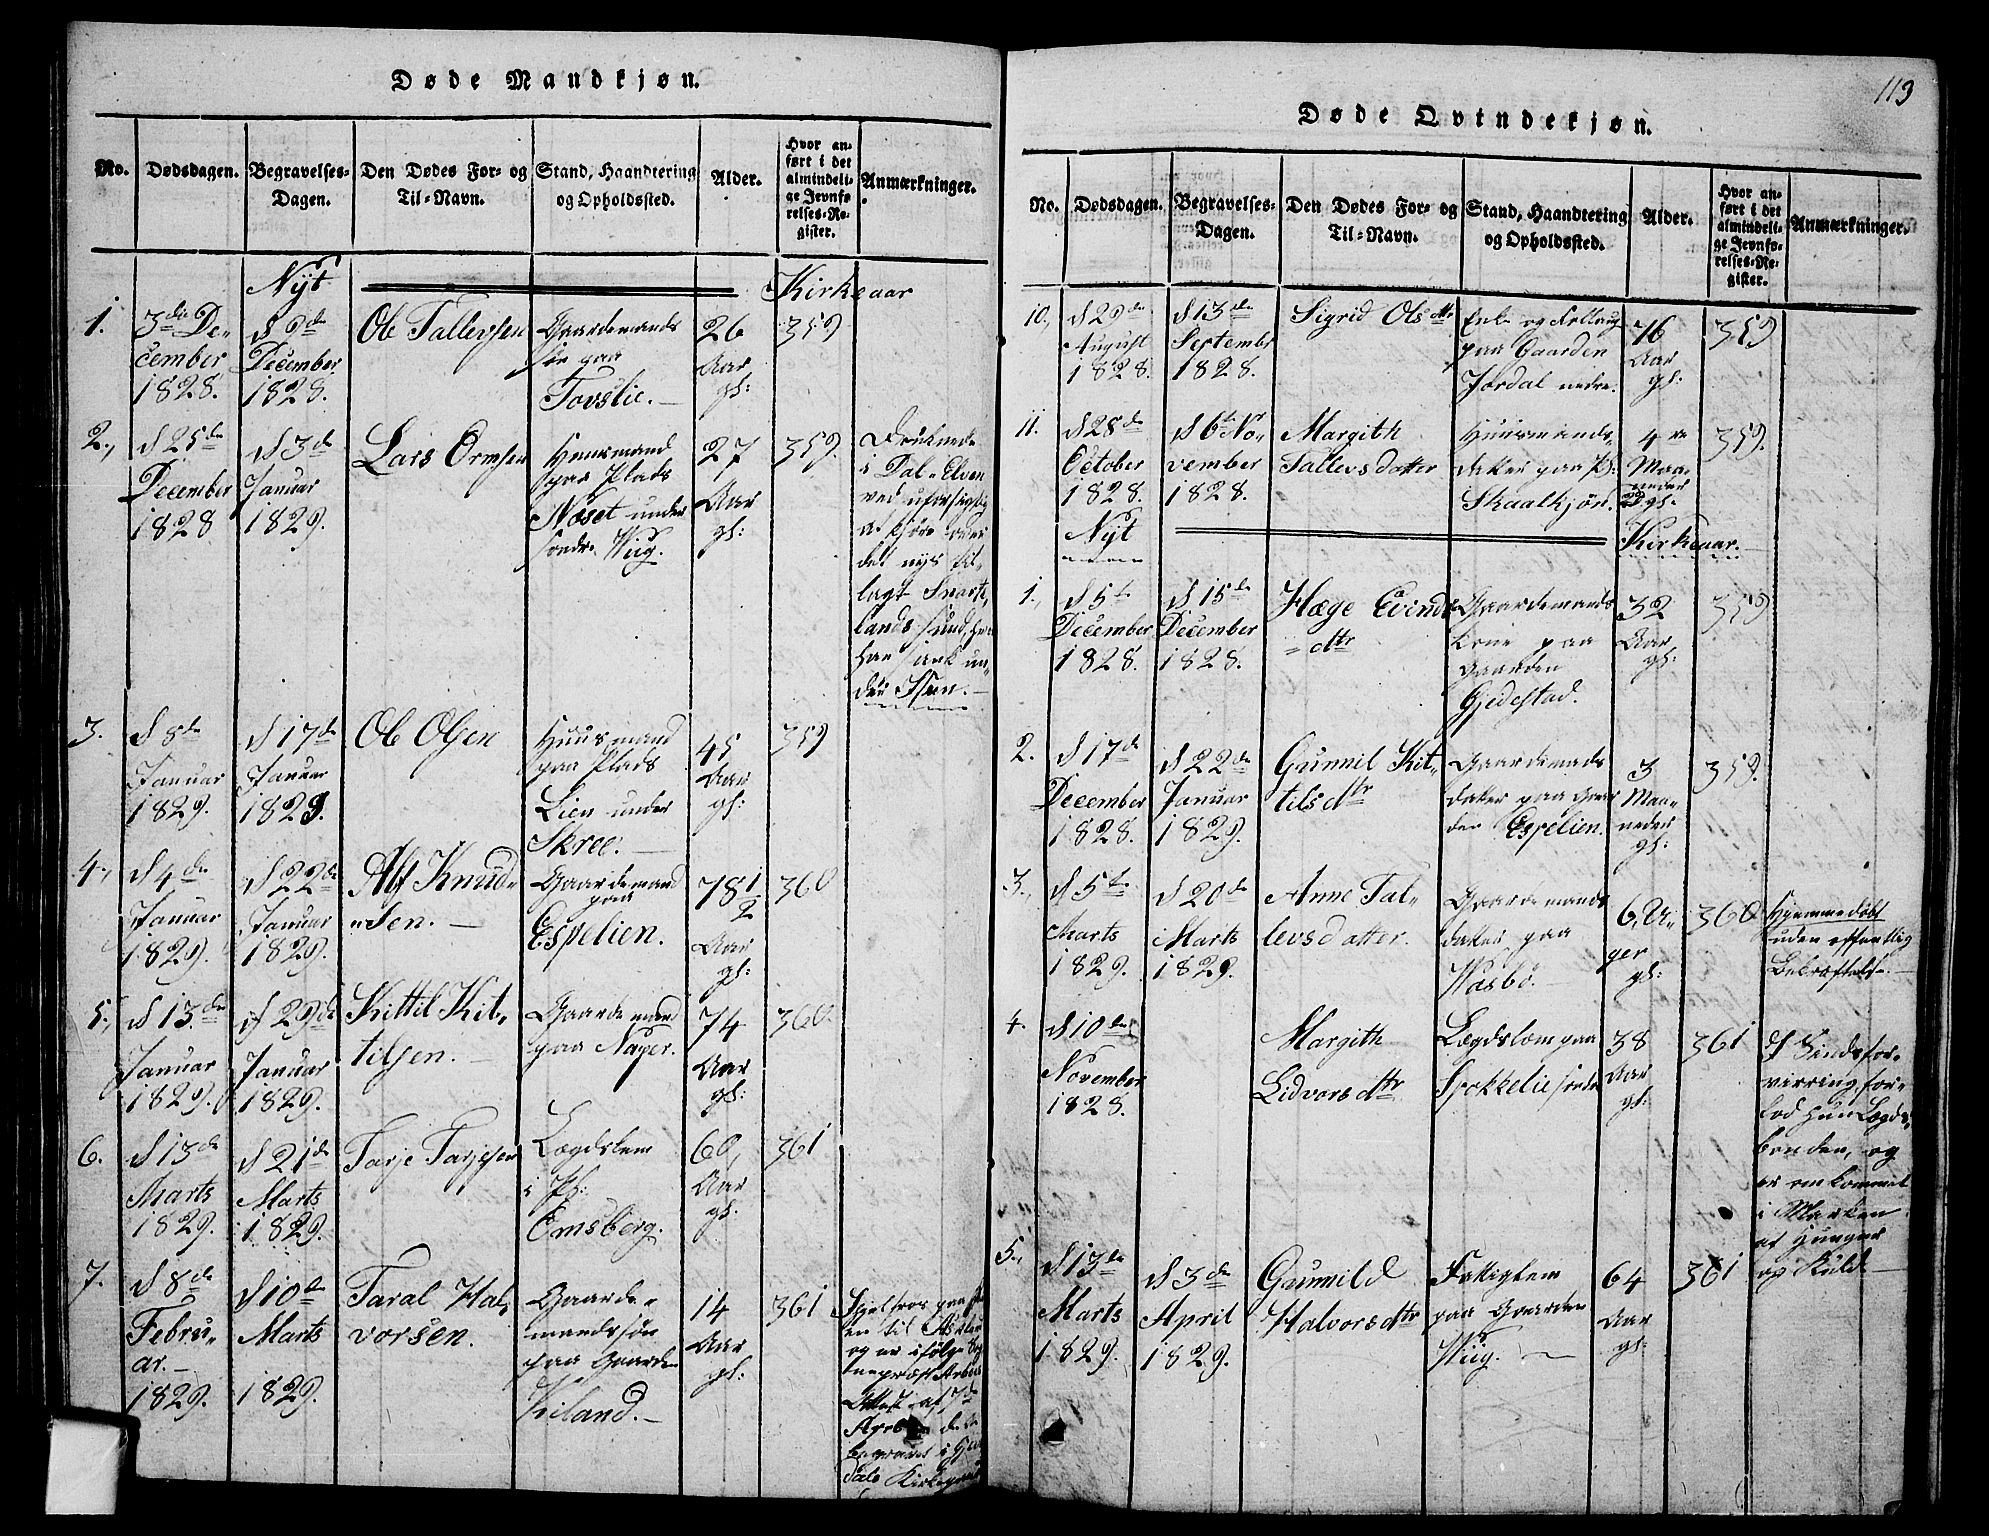 Døde Mandkjøn.
No.
Dødsdagen.
Begravelses-
Dagen.
Den Dødes For- og
Til-Navn.
Stand, Haandtering
og Opholdssted.
Alder.
Hvor an-
ført i det
almindeli-
ge Jevnfø-
relses-Re-
gister.
Anmærkninger.
Nyt Kirkeaar
1.
3die De-
cember
1828.
d 9de
December
1828.
Ole Tallevsen
Gaardemands
søn paa
Tovslie.
26
Aar
gl:
359
2.,
d 25de
December
1828
d 3de
Januar
1829.
Lars Ormsen
Huusmand
paa Plads
Næset under
søndre Viig.
27
Aar
gl:
359.
Druknede
i Dal-Elven
ved uforsigtig
at kjøre over
det nys til-
lagt
lands Sund, hvor
han sank un-
der Isen.
3.
d 8de
Januar
1829.
d 17de
Januar
1829.
Ole Olsen
Huusmand
paa Plads
Lien under
Skree.
45
Aar
gl:
359
4.,
d 4de
Januar
1829.
d 22de
Januar
1829.
Alf Knud-
sen.
Gaardemand
paa
Espelien.
78 1/2
Aar
gl:
360
5.,
d 13de
Januar
1829.
d 29de
Januar
1829.
Kittil Kit-
tilsen.
Gaardemand
paa Næper.
74
Aar
gl:
360.
6.
d 13de
Marts
1829.
d 21de
Marts
1829.
Tarje Tarjesen
Lægdslem
i Pl:
Omsberg.
60,
Aar
gl:
361
7.
d 8de
Febru-
ar.
1829.
d 10de
Marts
1829.
Taral Hal-
vorsen.
Gaarde-
mandssøn
paa Gaarden
Kiland.
14
Aar
gl:
361
Ihjelfros paa
en til
og er ifølge
Attest af 7de
Kirkegaard
113
Døde Qvindekjøn.
No.
Dødsdagen.
Begravelses-
Dagen.
Den Dødes For- og
Til-Navn.
Stand, Haandtering
og Opholdssted.
Alder.
Hvor an-
ført i det
almindeli-
ge Jevnfø-
relses-Re-
gister.
Anmærkninger.
10.,
d 29de
August
1828.
d 13de
Septembr
1828.
Sigrid Olsdtr
Enke og Follaug
paa Gaarden
Jordal nedre.
76
Aar
gl:
359
11.
d 28de
October
1828.
d 6te No-
vember
1828.
Margith
Tallevsdatter
Huusmands-
datter paa Pl:
Skaalkjøn.
4re
Maa-
neder
gl:
359.
Nyt Kirkeaar.
1.,
d 5te
December
1828.
d 15de
December
1828.
Hæge Evinds-
dtr
Gaardemands
kone paa
Gaarden
Gjedestad.
32
Aar
gl:
359
2.
d 17de
December
1828.
d 22de
Januar
1829.
Gunnil Kit-
tilsdtr
Gaardemands
datter paa Gaar
den Espelien.
3
Maa-
neder
gl:
359.
3.,
d 5te
Marts
1829.
d 20de
Marts
1829.
Anne Tal-
levsdatter.
Gaardemands
datter paa
Wasbø.
6, U-
ger
gl:
360
Hjemmedøbt
uden offentlig
Bekræftelse.
4.
d 10de
November
1828.
Margith
Lidvorsdtr
Lægdslem paa
Spokkelie søndr
38
Aar
gl:
361
Af Sindsfor-
virring for-
lod hun Lægds-
bonden, og
er omkommet
i Marken
af Hunger
og Kuld
5.,
d 13de
Marts
1829.
d 3de
April
1829.
Gunnild
Halvorsdtr
Fattiglem
paa Gaarden
Viig.
64
Aar
gl:
361